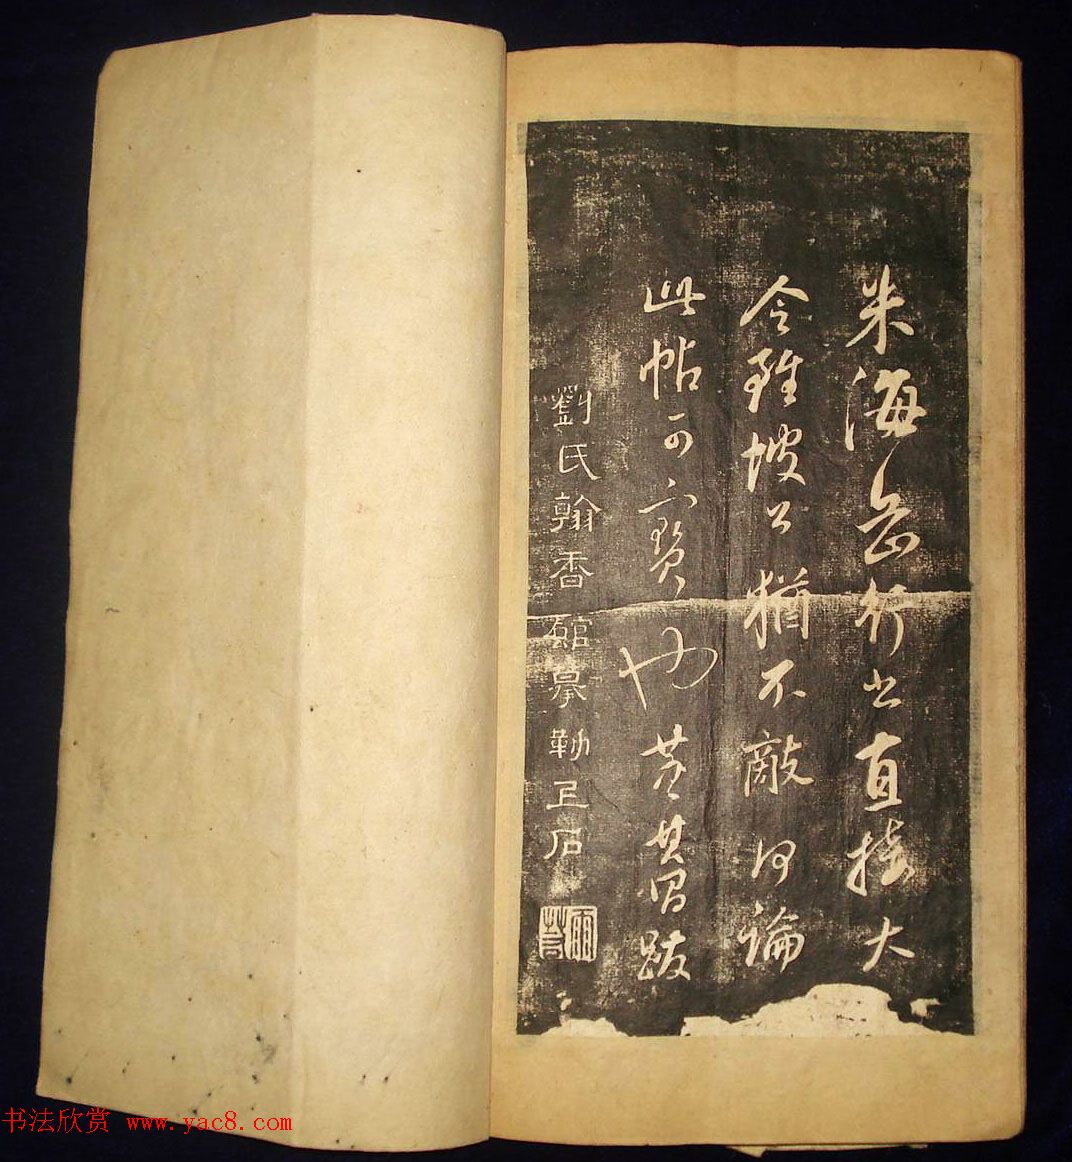 米海岳行书直接大
令雖坡公猶不敵何論
此帖可不寶也董其昌跋
劉氏翰香館摹勒上石
书法欣赏 www.yac8.com